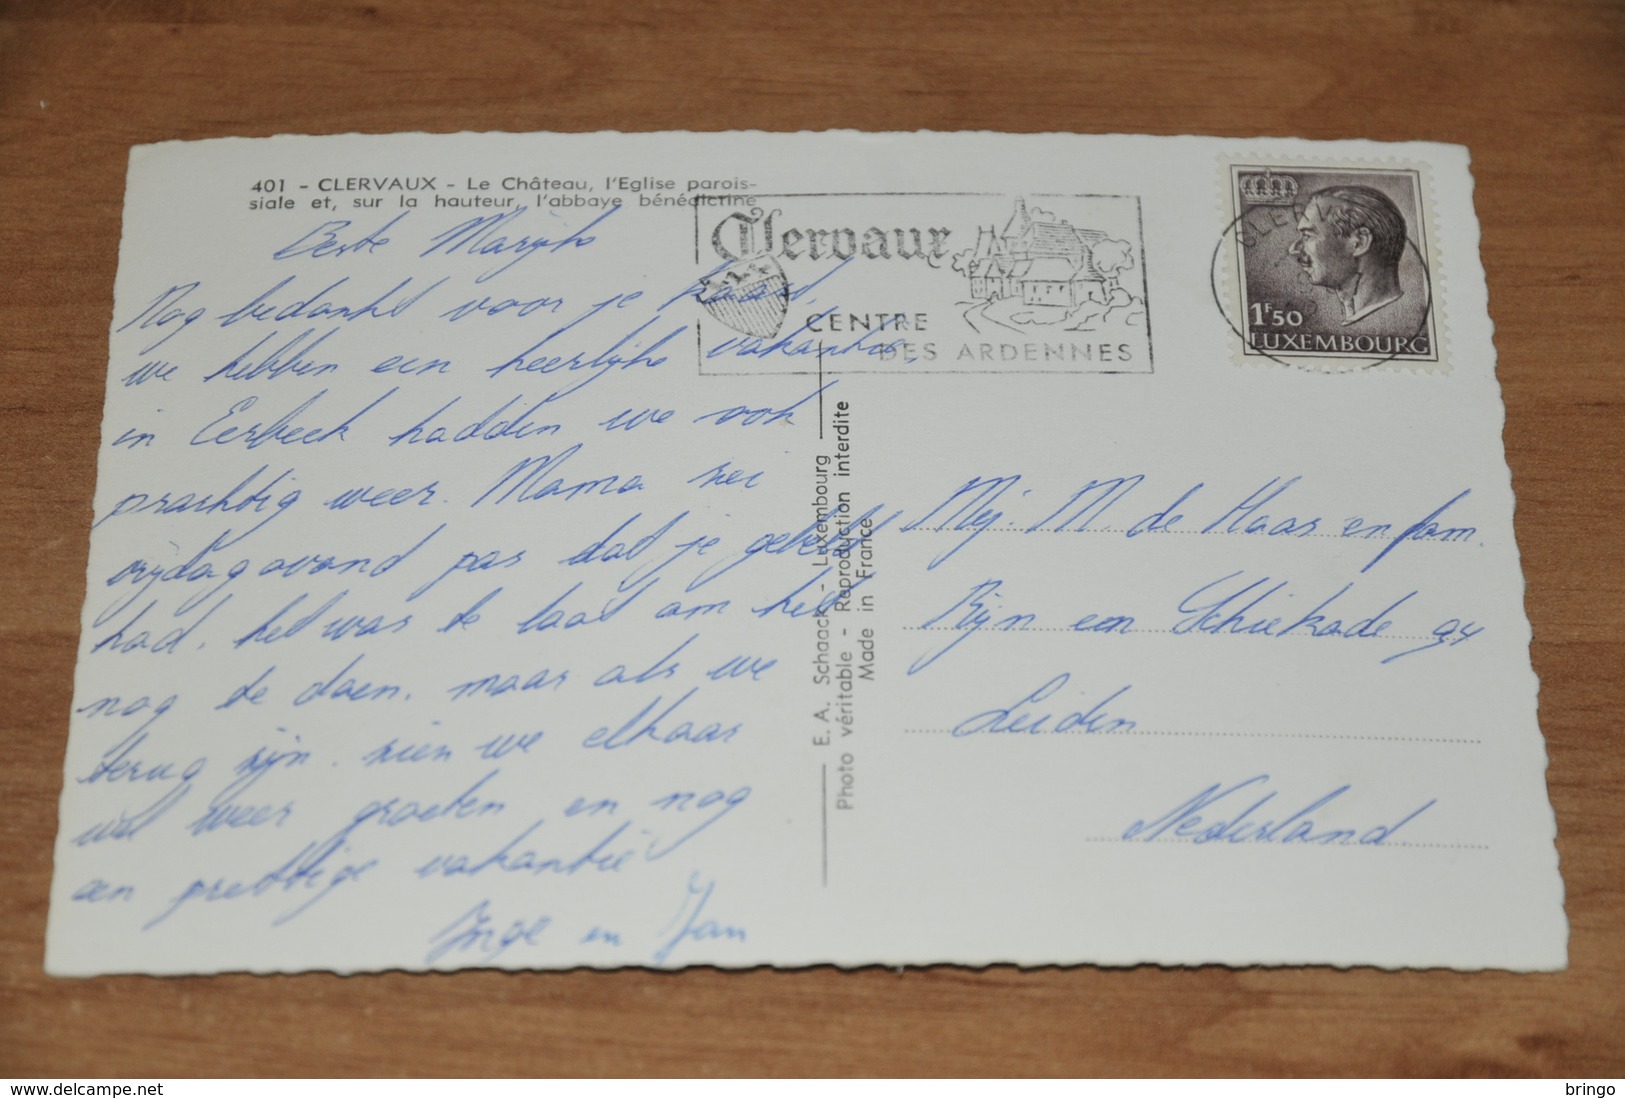 401 - CLERVAUX - Le Château, l'Eglise parois-
siale et, sur la hauteur, l'abbaye bénédictine
Beste Marijke
Nog bedankt voor je kaart,
we hebben een heerlijke vakantie,
in Eerbeek hadden we ook
prachtig weer. Mama zei
vrijdagavond pas dat je gebeld
had. het was te laat om het
nog te doen. maar als we
terug zijn. zien we elkaar
wel weer groeten en nog
een prettige vakantie
Inge en Jan
Clervaux
CENTRE
DES ARDENNES
CLERV
1F50
LUXEMBOURG
E. A. Schaack - Luxembourg
Photo véritable - Reproduction interdite
Made in France
Mej. M. de Haas en fam.
Rijn en Schiekade 94
Leiden
Nederland
bringo